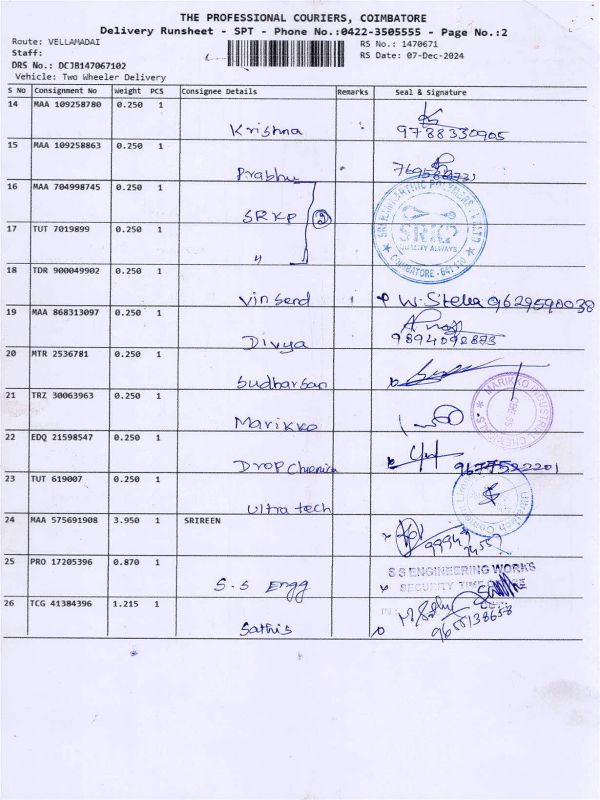 THE PROFESSIONAL COURIERS, COIMBATORE
Delivery Runsheet - SPT - Phone No.:0422-3505555 - Page No.:2
Route: VELLAMADAI
RS No.: 1470671
Staff:
RS Date: 07-Dec-2024
DRS No.: DCJB147067102
Vehicle: Two Wheeler Delivery
S No Consignment No Weight PCS Consignee Details Remarks Seal & Signature
14 MAA 109258780 0.250 1
Krishna 9788330905
15 MAA 109258863 0.250 1
Prabhu
16 MAA 704998745 0.250 1
SRKP 2
17 TUT 7019899 0.250 1
"
SRKP
QUALITY ALWAYS
COIMBATORE - 641 110
18 TDR 900049902 0.250 1
Vinsend W. Stella 9629590038
19 MAA 868313097 0.250 1
Divya 9894092873
20 MTR 2536781 0.250 1
Sudharsan
21 TRZ 30063963 0.250 1
Marikko
MARIKKO INDUSTRIAL CHEMICALS
22 EDQ 21598547 0.250 1
Drop Chemica 9677522201
23 TUT 619007 0.250 1
Ultra tech
Ultratech Cement Limited
24 MAA 575691908 3.950 1 SRIREEN
25 PRO 17205396 0.870 1
S.S Engg
S S ENGINEERING WORKS
SECURITY TIME
IN:
26 TCG 41384396 1.215 1
Sathis 9655138658